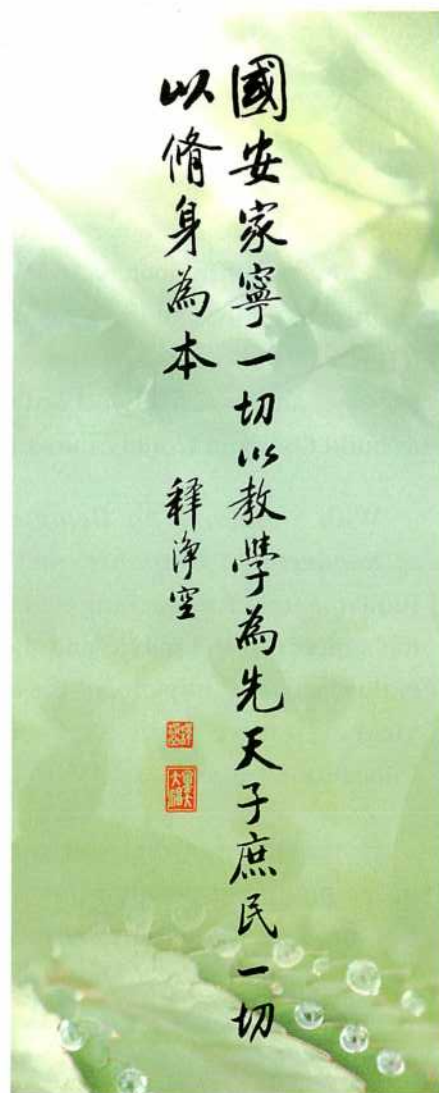 國安家寧一切以教學為先天子庶民一切
以脩身為本
釋淨空